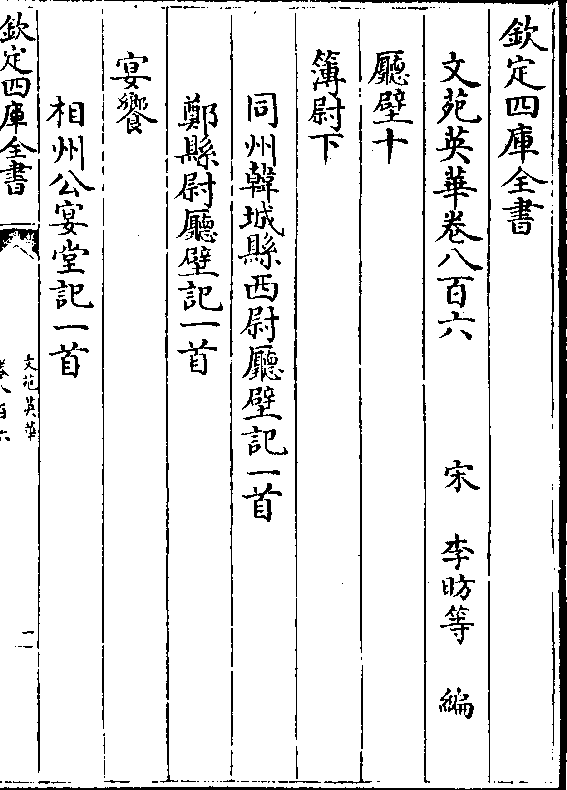 欽定四庫全書
文苑英華卷八百六
宋 李昉等 編
廳壁十
簿尉下
同州韓城縣西尉廳壁記一首
鄭縣尉廳壁記一首
宴饗
相州公宴堂記一首
欽定四庫全書
文苑英華
卷八百六
二